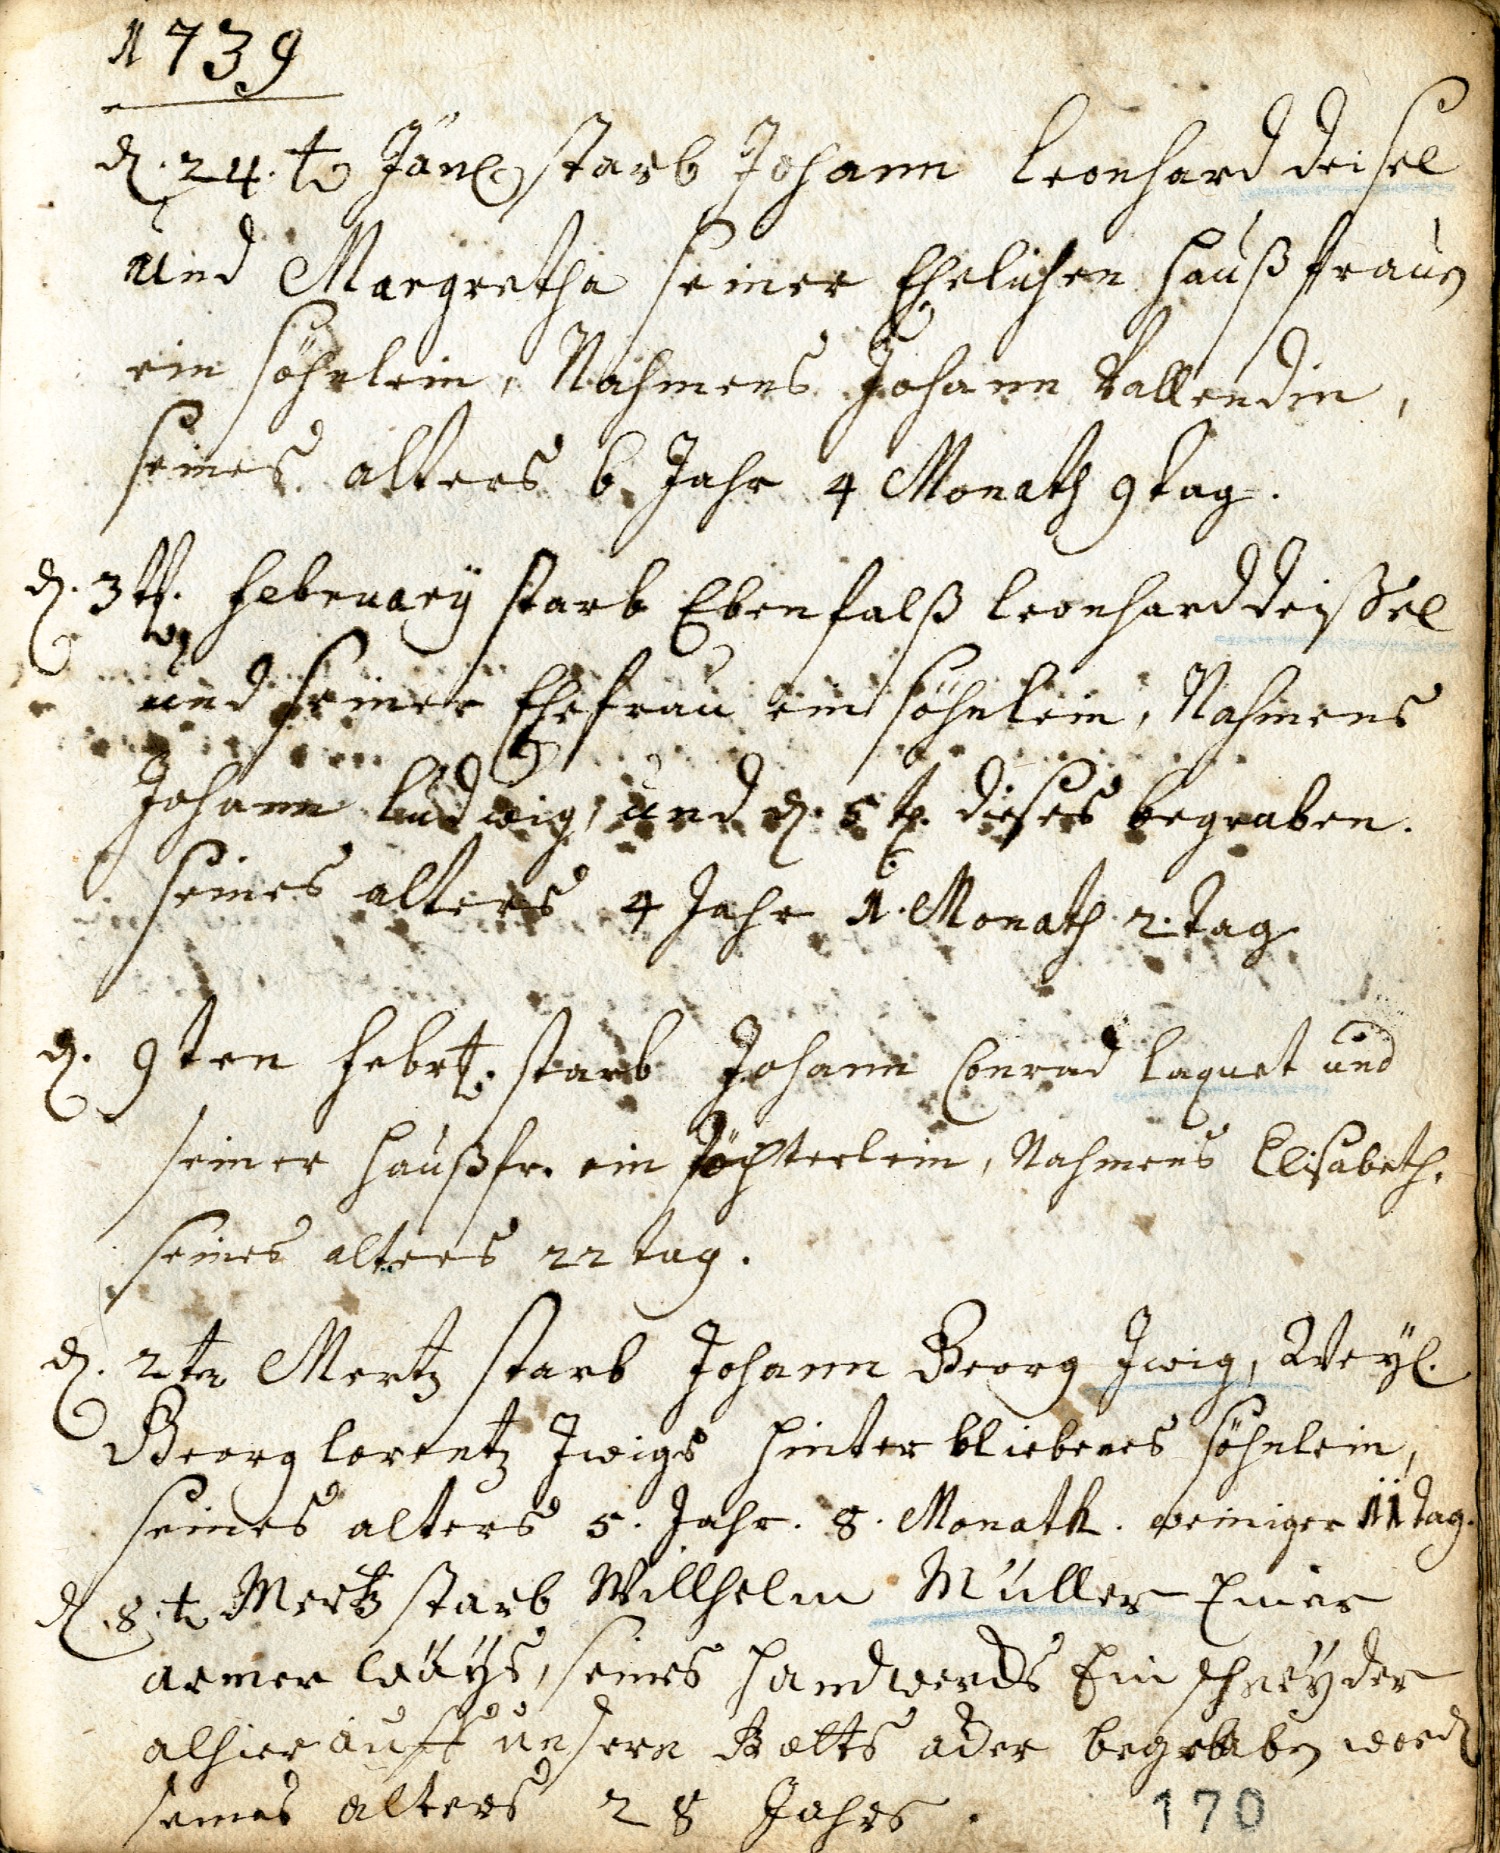 1739
d. 24. t. Jan. starb Johann Leonhard Deisel
und Margretha seiner Ehelichen Haußfrauen
ein söhnlein, Nahmens Johann Vallendin,
seines alters 6 Jahr 4 Monath 9 tag.
d. 3tt. February starb Ebenfalß Leonhard Deissel
und seiner Ehefrau ein söhnlein, Nahmens
Johann Ludwig, und d. 5 t. dieses begraben.
seines alters 4 Jahr 1. Monath 2. tag
d. 9ten Febr. starb Johann Conrad Laquet und
seiner Haußfr. ein töchterlein, Nahmens Elisabeth.
seines alters 22 tag.
d. 2te Mertz starb Johann Georg Zwig, Weyl.
Georg Lorentz Zwigs hinterbliebenes söhnlein,
seines alters 5. Jahr. 8. Monath. weiniger 11 tag.
d. 8. t. Mertz starb Willhelm Müller Einer
armer wäÿs, seines Handwercks Ein schneÿder
alhier auff unsern Gotts acker begraben word
seines alters 28 Jahrs.
170